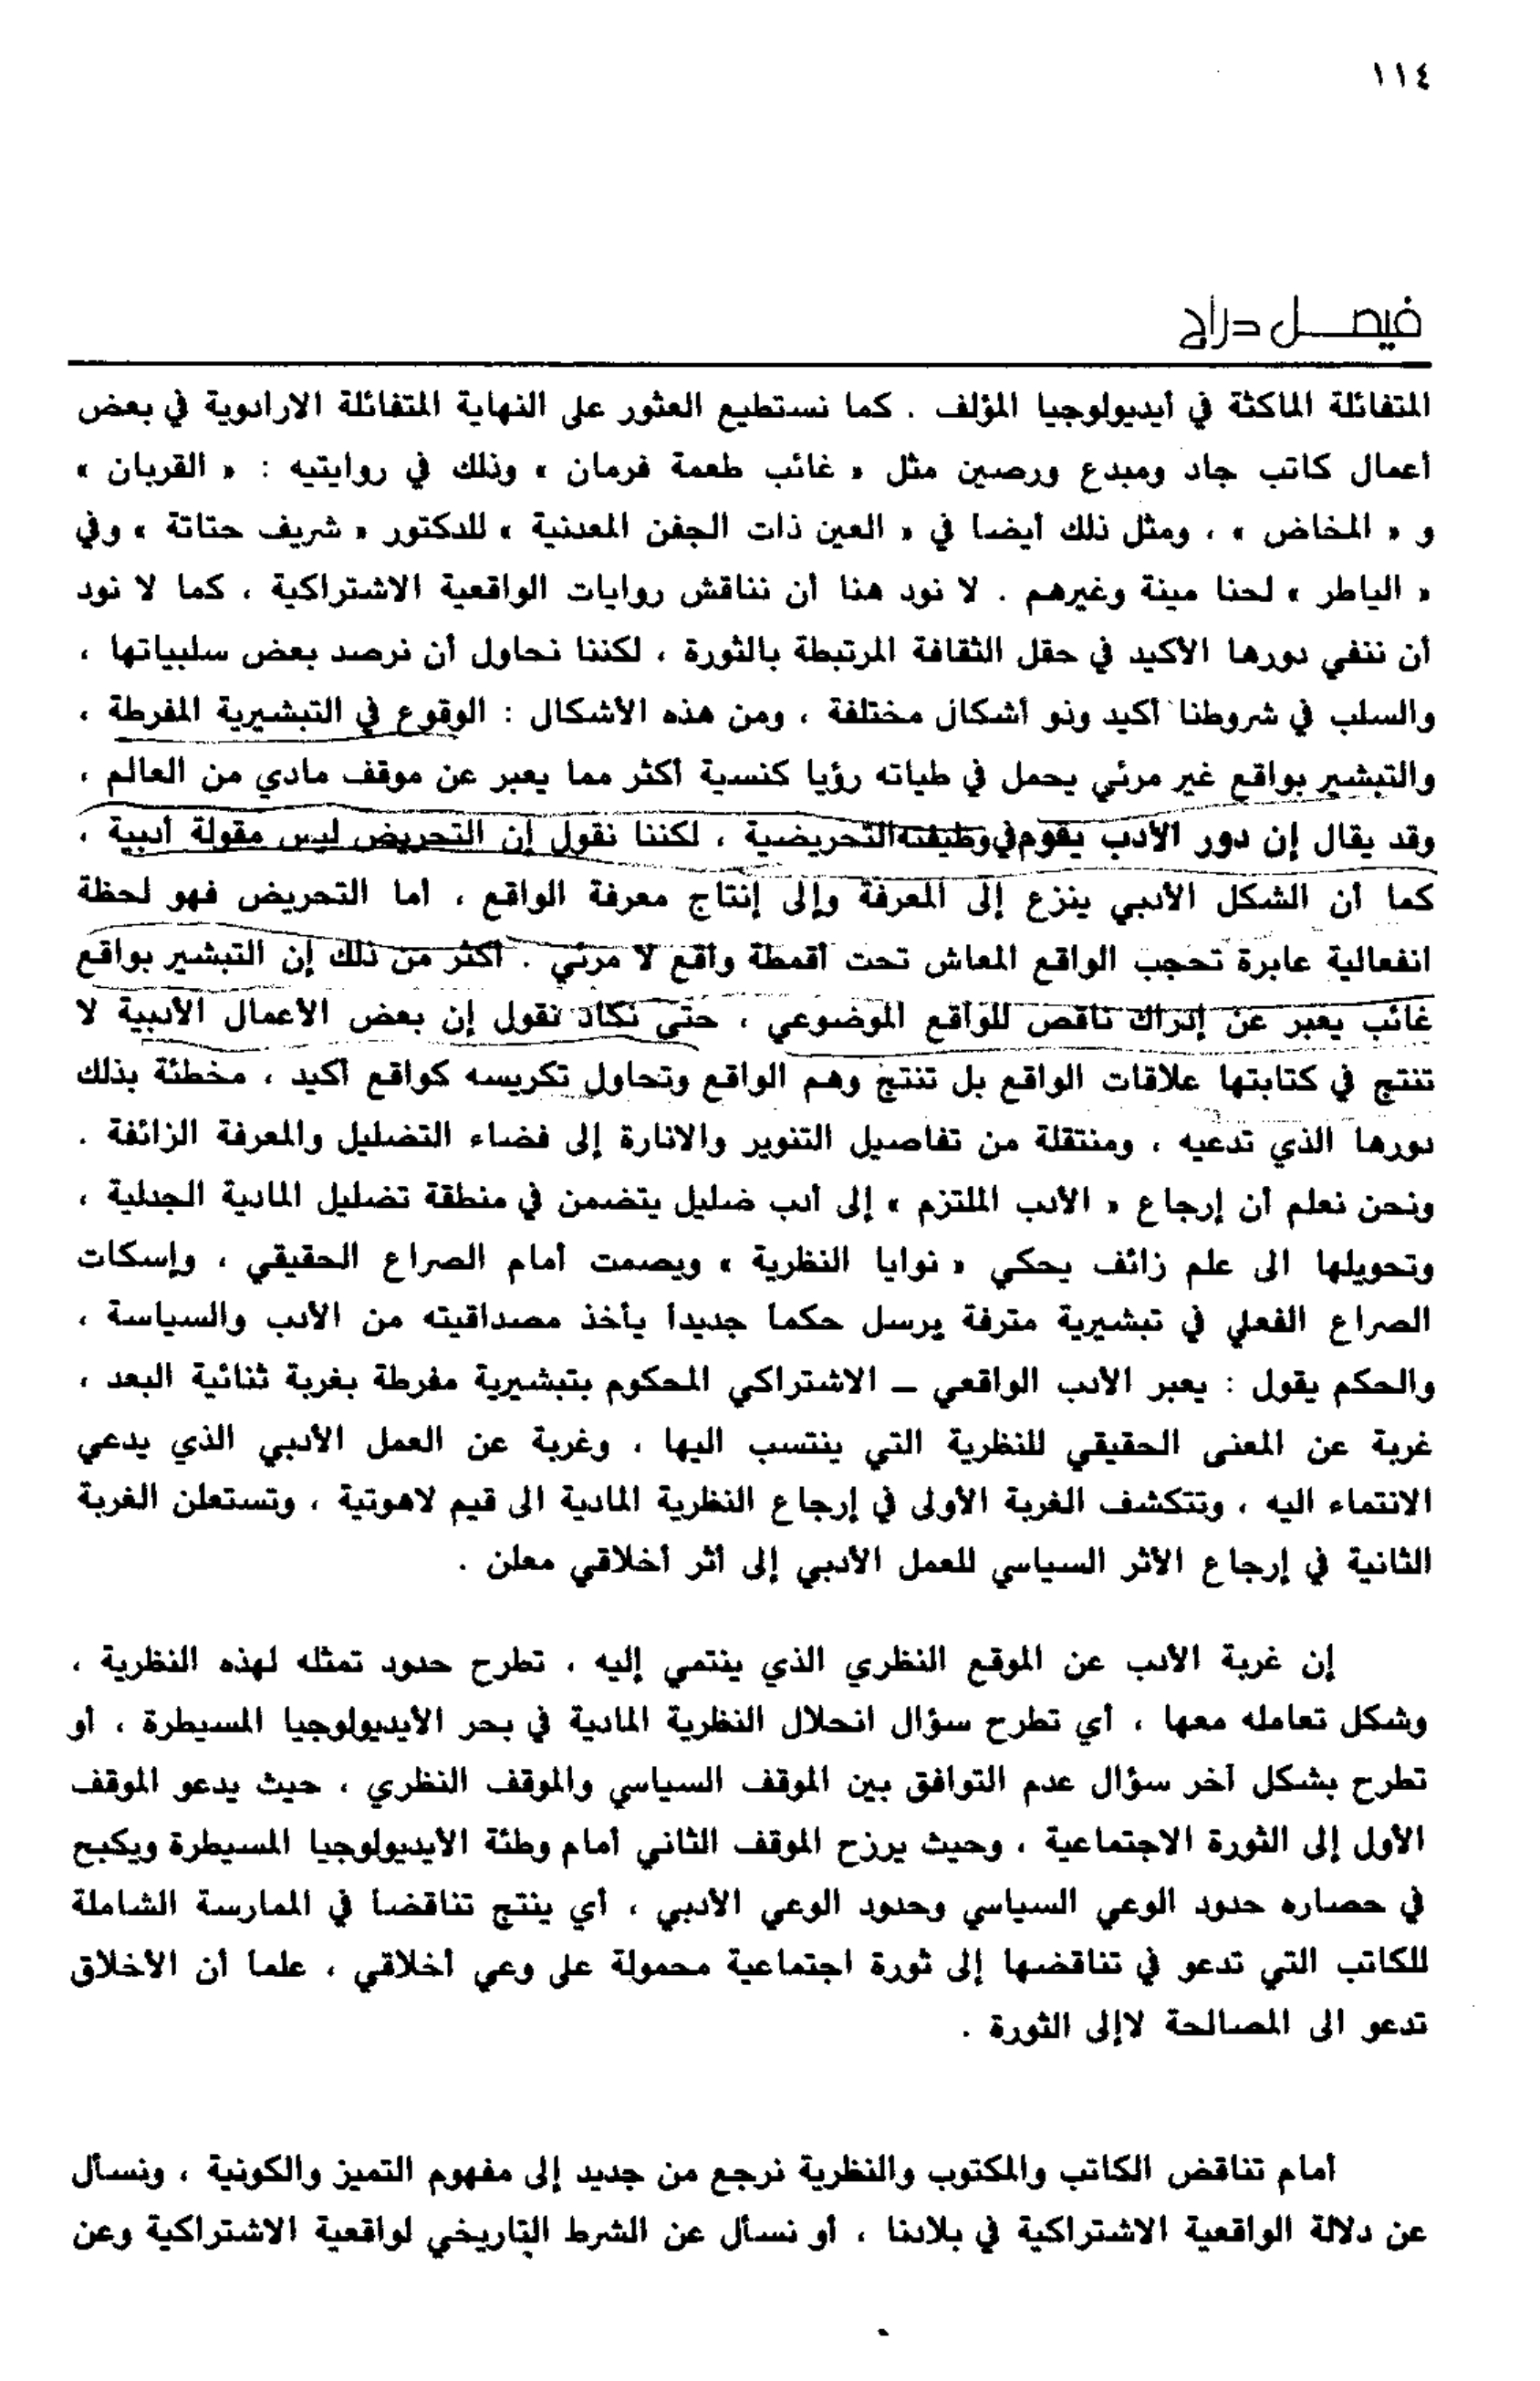 ١١٤
فيصل دراج
المتفائلة الماكثة في أيديولوجيا المؤلف . كما نستطيع العثور على النهاية المتفائلة الارادوية في بعض
أعمال كاتب جاد ومبدع ورصين مثل « غائب طعمة فرمان » وذلك في روايتيه : « القربان »
و « المخاض » ، ومثل ذلك أيضا في « العين ذات الجفن المعدنية » للدكتور « شريف حتاتة » وفي
« الياطر » لحنا مينة وغيرهم . لا نود هنا أن نناقش روايات الواقعية الاشتراكية ، كما لا نود
أن ننفي دورها الأكيد في حقل الثقافة المرتبطة بالثورة ، لكننا نحاول أن نرصد بعض سلبياتها ،
والسلب في شروطنا أكيد وذو أشكال مختلفة ، ومن هذه الأشكال : الوقوع في التبشيرية المفرطة ،
والتبشير بواقع غير مرئي يحمل في طياته رؤيا كنسية أكثر مما يعبر عن موقف مادي من العالم ،
وقد يقال إن دور الأدب يقوم في وظيفته التحريضية ، لكننا نقول إن التحريض ليس مقولة أدبية ،
كما أن الشكل الأدبي ينزع إلى المعرفة وإلى إنتاج معرفة الواقع ، أما التحريض فهو لحظة
انفعالية عابرة تحجب الواقع المعاش تحت أقمطة واقع لا مرئي . أكثر من ذلك إن التبشير بواقع
غائب يعبر عن إدراك ناقص للواقع الموضوعي ، حتى نكاد نقول إن بعض الأعمال الأدبية لا
تنتج في كتابتها علاقات الواقع بل تنتج وهم الواقع وتحاول تكريسه كواقع أكيد ، مخطئة بذلك
دورها الذي تدعيه ، ومنتقلة من تفاصيل التنوير والانارة إلى فضاء التضليل والمعرفة الزائفة .
ونحن نعلم أن إرجاع « الأدب الملتزم » إلى أدب ضليل يتضمن في منطقة تضليل المادية الجدلية ،
وتحويلها الى علم زائف يحكي « نوايا النظرية » ويصمت أمام الصراع الحقيقي ، وإسكات
الصراع الفعلي في تبشيرية مترفة يرسل حكما جديدا يأخذ مصداقيته من الأدب والسياسة ،
والحكم يقول : يعبر الأدب الواقعي ــ الاشتراكي المحكوم بتبشيرية مفرطة بغربة ثنائية البعد ،
غربة عن المعنى الحقيقي للنظرية التي ينتسب اليها ، وغربة عن العمل الأدبي الذي يدعي
الانتماء اليه ، وتتكشف الغربة الأولى في إرجاع النظرية المادية الى قيم لاهوتية ، وتستعلن الغربة
الثانية في إرجاع الأثر السياسي للعمل الأدبي إلى أثر أخلاقي معلن .
إن غربة الأدب عن الموقع النظري الذي ينتمي إليه ، تطرح حدود تمثله لهذه النظرية ،
وشكل تعامله معها ، أي تطرح سؤال انحلال النظرية المادية في بحر الأيديولوجيا المسيطرة ، أو
تطرح بشكل آخر سؤال عدم التوافق بين الموقف السياسي والموقف النظري ، حيث يدعو الموقف
الأول إلى الثورة الاجتماعية ، وحيث يرزح الموقف الثاني أمام وطئة الأيديولوجيا المسيطرة ويكبح
في حصاره حدود الوعي السياسي وحدود الوعي الأدبي ، أي ينتج تناقضا في الممارسة الشاملة
للكاتب التي تدعو في تناقضها إلى ثورة اجتماعية محمولة على وعي أخلاقي ، علما أن الأخلاق
تدعو الى المصالحة لاإلى الثورة .
أمام تناقض الكاتب والمكتوب والنظرية نرجع من جديد إلى مفهوم التميز والكونية ، ونسأل
عن دلالة الواقعية الاشتراكية في بلادنا ، أو نسأل عن الشرط التاريخي لواقعية الاشتراكية وعن